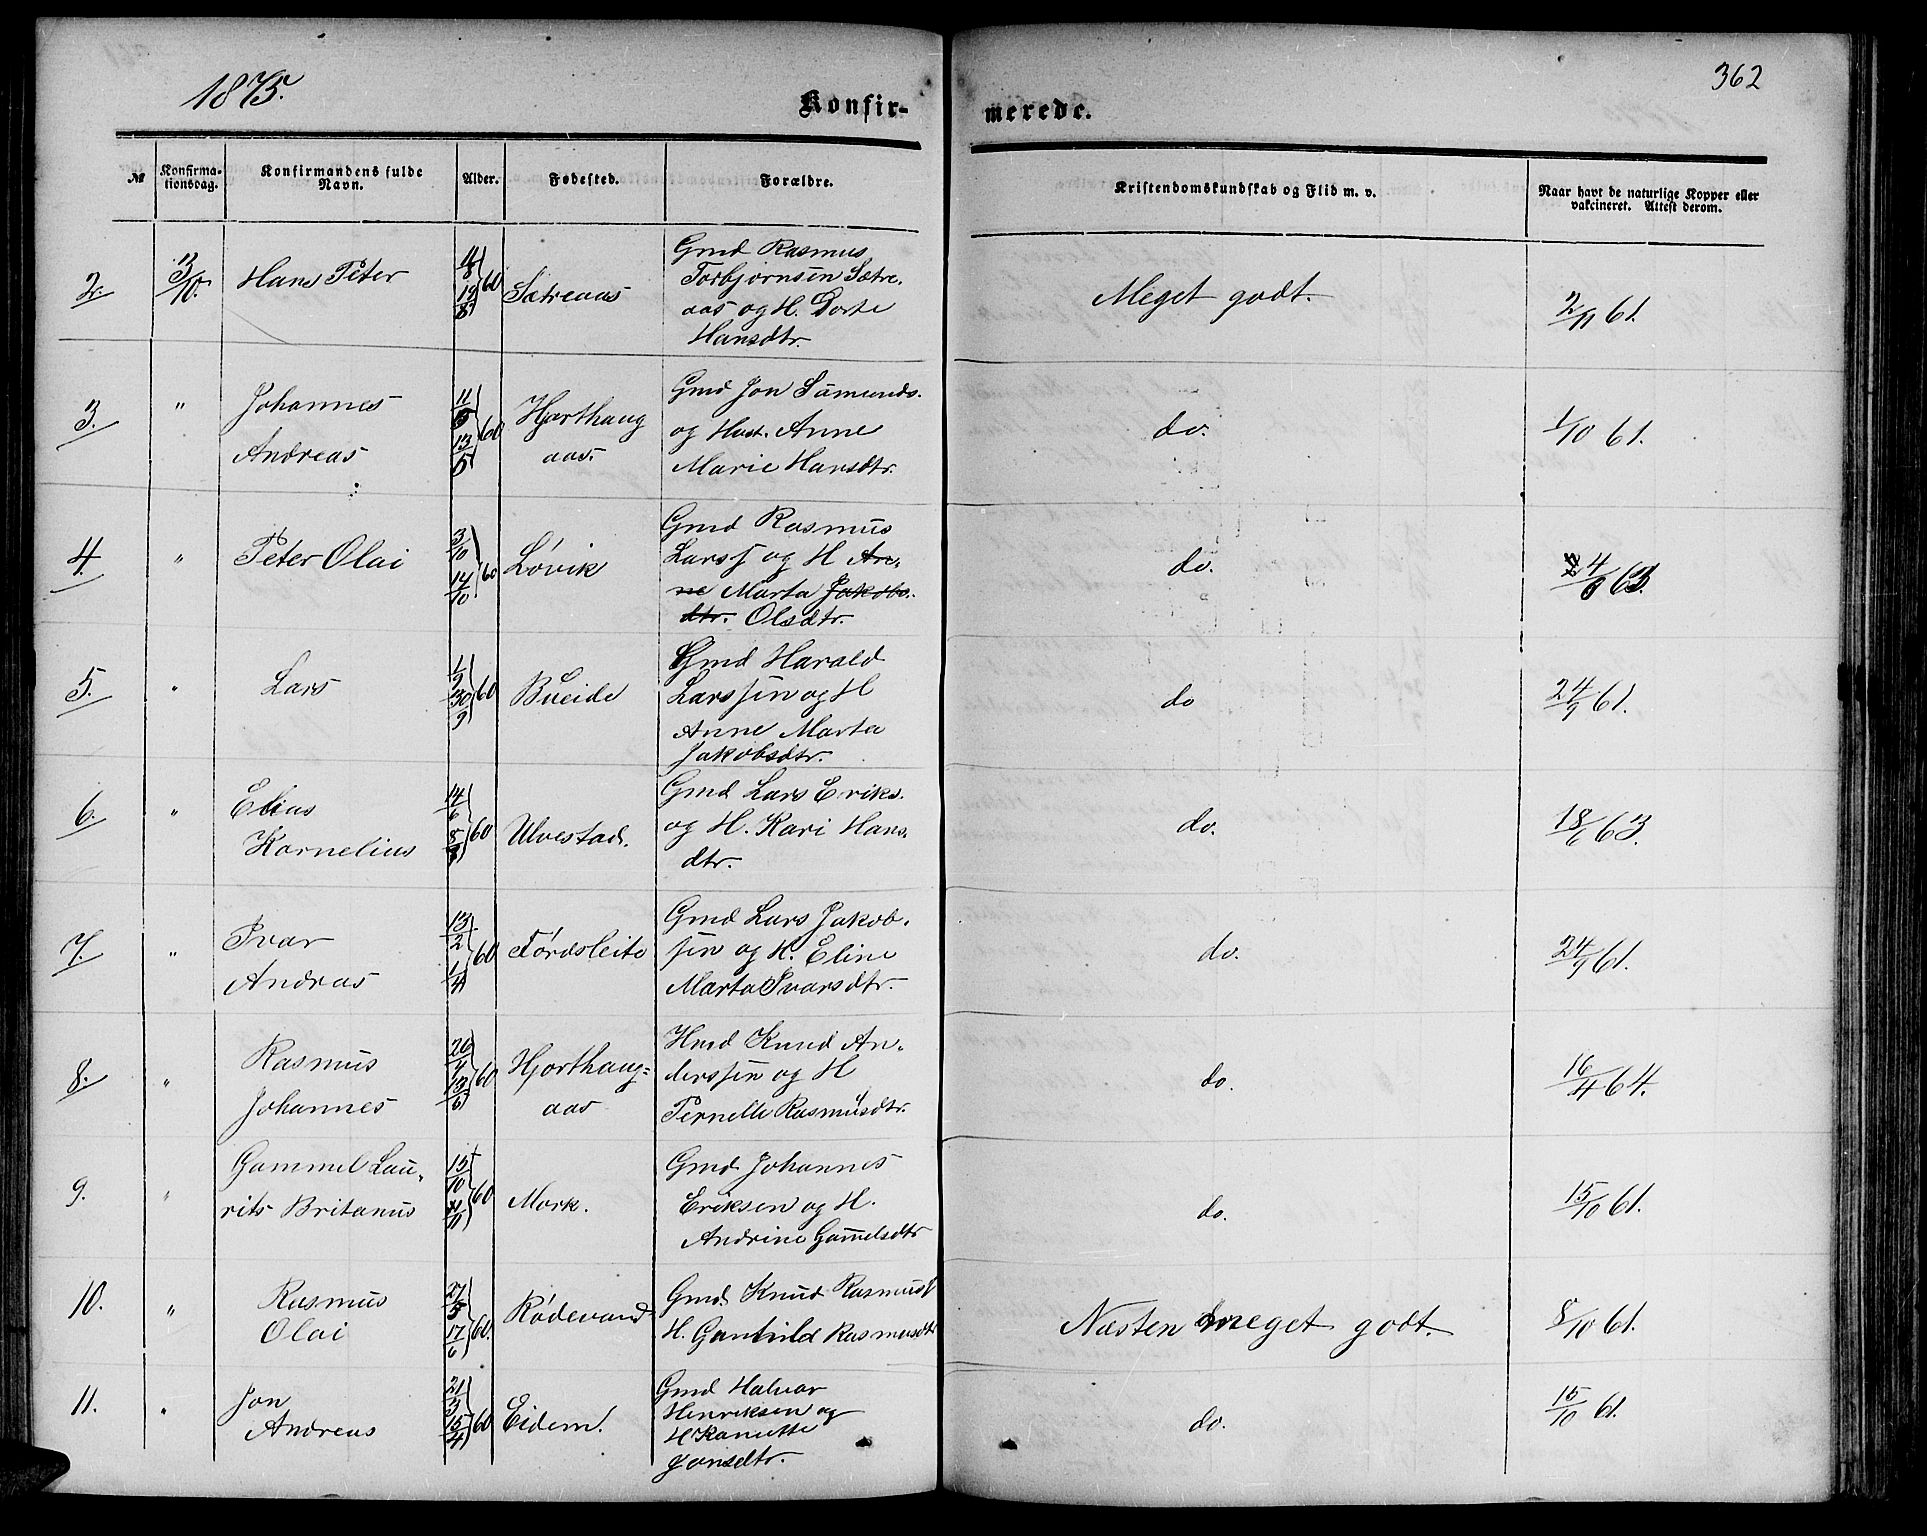 1875.
362
Konfir-
merede.
№
Konfirma-
tionsdag.
Konfirmandens fulde
Navn.
Alder.
Fødested.
Forældre.
Kristendomskundskab og Flid m. v.
Naar havt de naturlige Kopper eller
vakcineret. Attest derom.
2. 3/10. Hans Peter 19/8 60 Sætreaas
Gmd Rasmus
Torbjørnsen Sætre-
aas og H. Dorte
Hansdtr.
Meget godt. 2/11 61.
3. " Johannes
Andreas
11/5 13/5 60 Hjorthaug
aas.
Gmd Jon Såmunds.
og Hust. Anne
Marie Hansdtr.
do. 1/10 61.
4. " Peter Olai 3/10 14/10 60 Løvik
Gmd Rasmus
Larss og H An-
ne Marta Jakobs-
dtr. Olsdtr.
do. 4/6 63.
5. " Lars 1/9 30/9 60 Bueide
Gmd Harald
Larssen og H
Anne Marta
Jakobsdtr.
do 24/9 61.
6. " Elias
Kornelius
14/6 8/8 60 Ulvestad.
Gmd Lars Eriks.
og H. Kari Hans
dtr.
do. 18/6 63.
7. " Ivar
Andras
13/2 1/4 60 Førdsleite
Gmd Lars Jakob-
sen og H. Eline
Marta Ivarsdtr.
do. 24/9 61.
8. " Rasmus
Johannes
26/4 13/6 60 Hjorthaug=
aas
Hmd Knud An-
derssen og H
Pernelle Rasmusdtr.
do. 16/4 64.
9. " Gammel Lau-
rits Britanus
15/10 11/11 60 Mork.
Gmd Johannes
Eriksen og H.
Andrine Gamelsdtr
do. 15/10 61.
10. " Rasmus
Olai
27/5 17/6 60. Rødevand
Gmd. Knud Rasmus
H. Gunhild Rasmusdt
Næsten meget godt. 8/10 61.
11. " Jon
Andreas
21/3 15/4 60 Eidem.
Gmd Halvar
Henriksen og
H Kanutte
Jonsdtr.
do. 15/10 61.